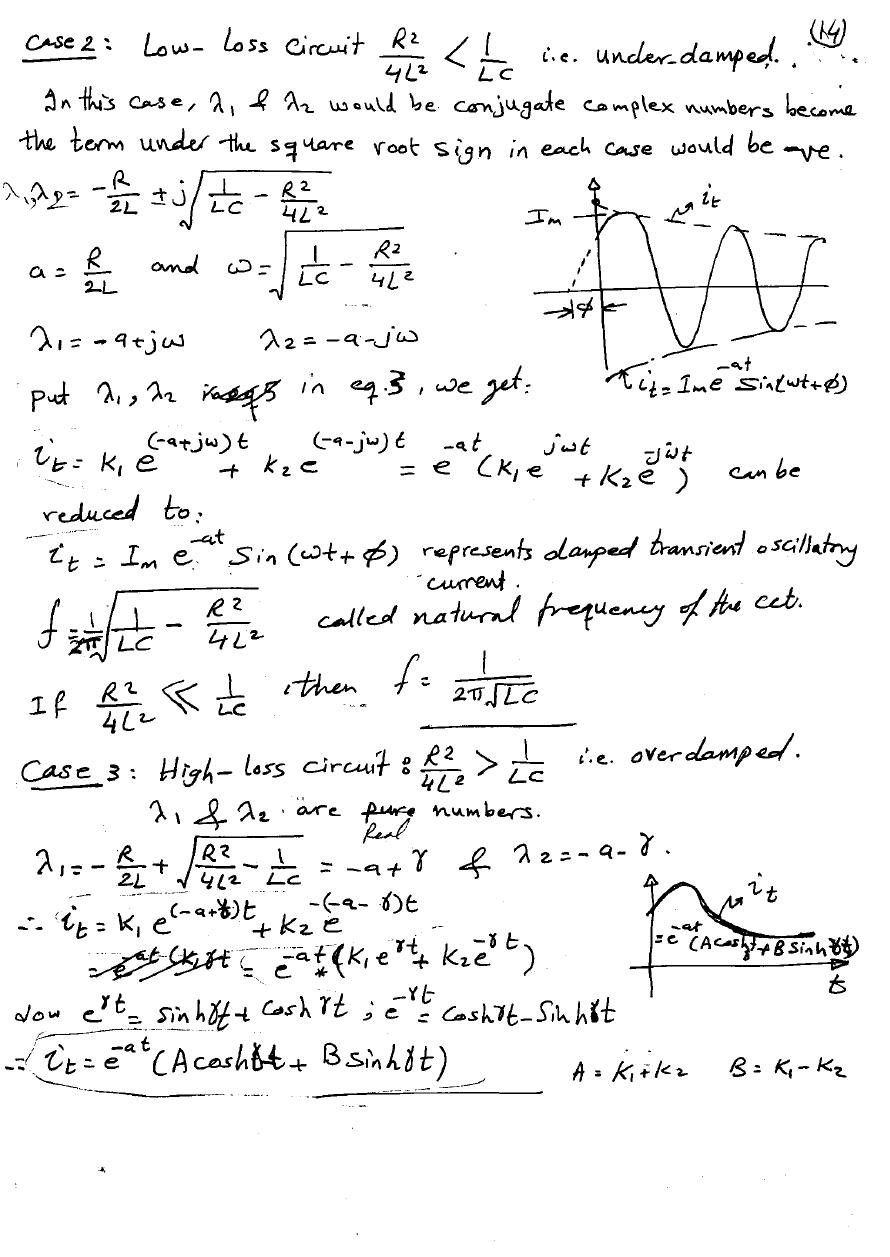 (14)
Case 2: Low-Loss circuit R²/4L² < 1/LC i.e. under-damped.
In this case, λ₁ & λ₂ would be conjugate complex numbers become
the term under the square root sign in each case would be -ve.
λ₁,λ₂ = -R/2L ± j√(1/LC - R²/4L²)
Im
it
a = R/2L and ω = √(1/LC - R²/4L²)
ϕ
λ₁ = -a+jω λ₂ = -a-jω
it = Im e^-at Sin(ωt+ϕ)
Put λ₁, λ₂ in eq.3, we get:
it = K₁ e^(-a+jω)t + K₂ e^(-a-jω)t = e^-at (K₁ e^jωt + K₂ e^-jωt) can be
reduced to:
it = Im e^-at Sin(ωt+ϕ) represents damped transient oscillatory
current.
f = 1/2π √(1/LC - R²/4L²) called natural frequency of the cct.
If R²/4L² ≪ 1/LC, then f = 1/2π√LC
Case 3: High-loss circuit: R²/4L² > 1/LC i.e. overdamped.
λ₁ & λ₂ are pure numbers.
Real
λ₁ = -R/2L + √(R²/4L² - 1/LC) = -a+γ & λ₂ = -a-γ.
it
∴ it = K₁ e^(-a+γ)t + K₂ e^-(-a-γ)t
= e^-at (A coshγt + B sinhγt)
t
= e^-at (K₁γt = e^-at * (K₁ e^γt + K₂ e^-γt)
Now e^γt = sinhγt + coshγt ; e^-γt = coshγt - Sinhγt
∴ it = e^-at (A coshγt + B sinhγt) A = K₁+K₂ B = K₁-K₂